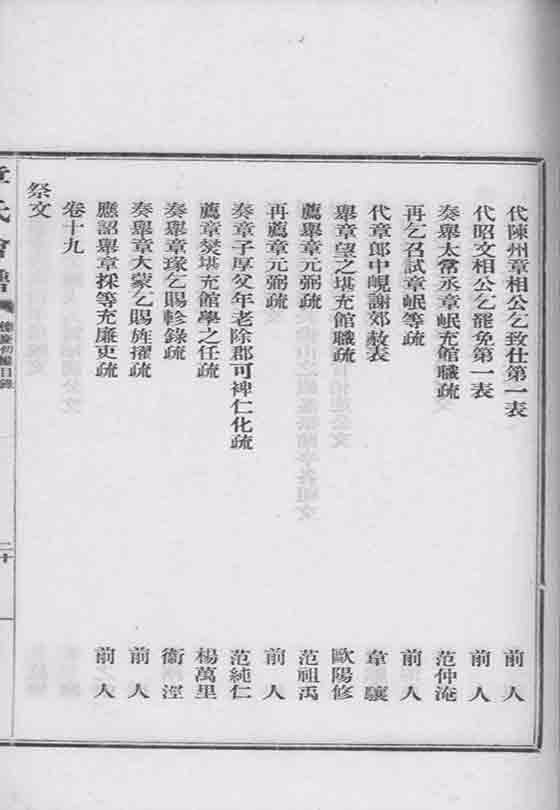 代陳州章相公乞致仕第一表　前人
代昭文相公乞罷免第一表　前人
奏舉太常丞章岷充館職疏　范仲淹
再乞召試章岷等疏　前人
代章郎中峴謝郊赦表　章驤
舉章望之堪充館職疏　歐陽修
薦舉章元弼疏　范祖禹
再薦章元弼疏　前人
奏章子厚父年老除郡可裨仁化疏　范純仁
薦章燮堪充館學之任疏　楊萬里
奏舉章琭乞賜軫錄疏　衞涇
奏舉章大蒙乞賜旌擢疏　前人
應詔舉章採等充廉吏疏　前人
卷十九
祭文
章氏會譜
二十